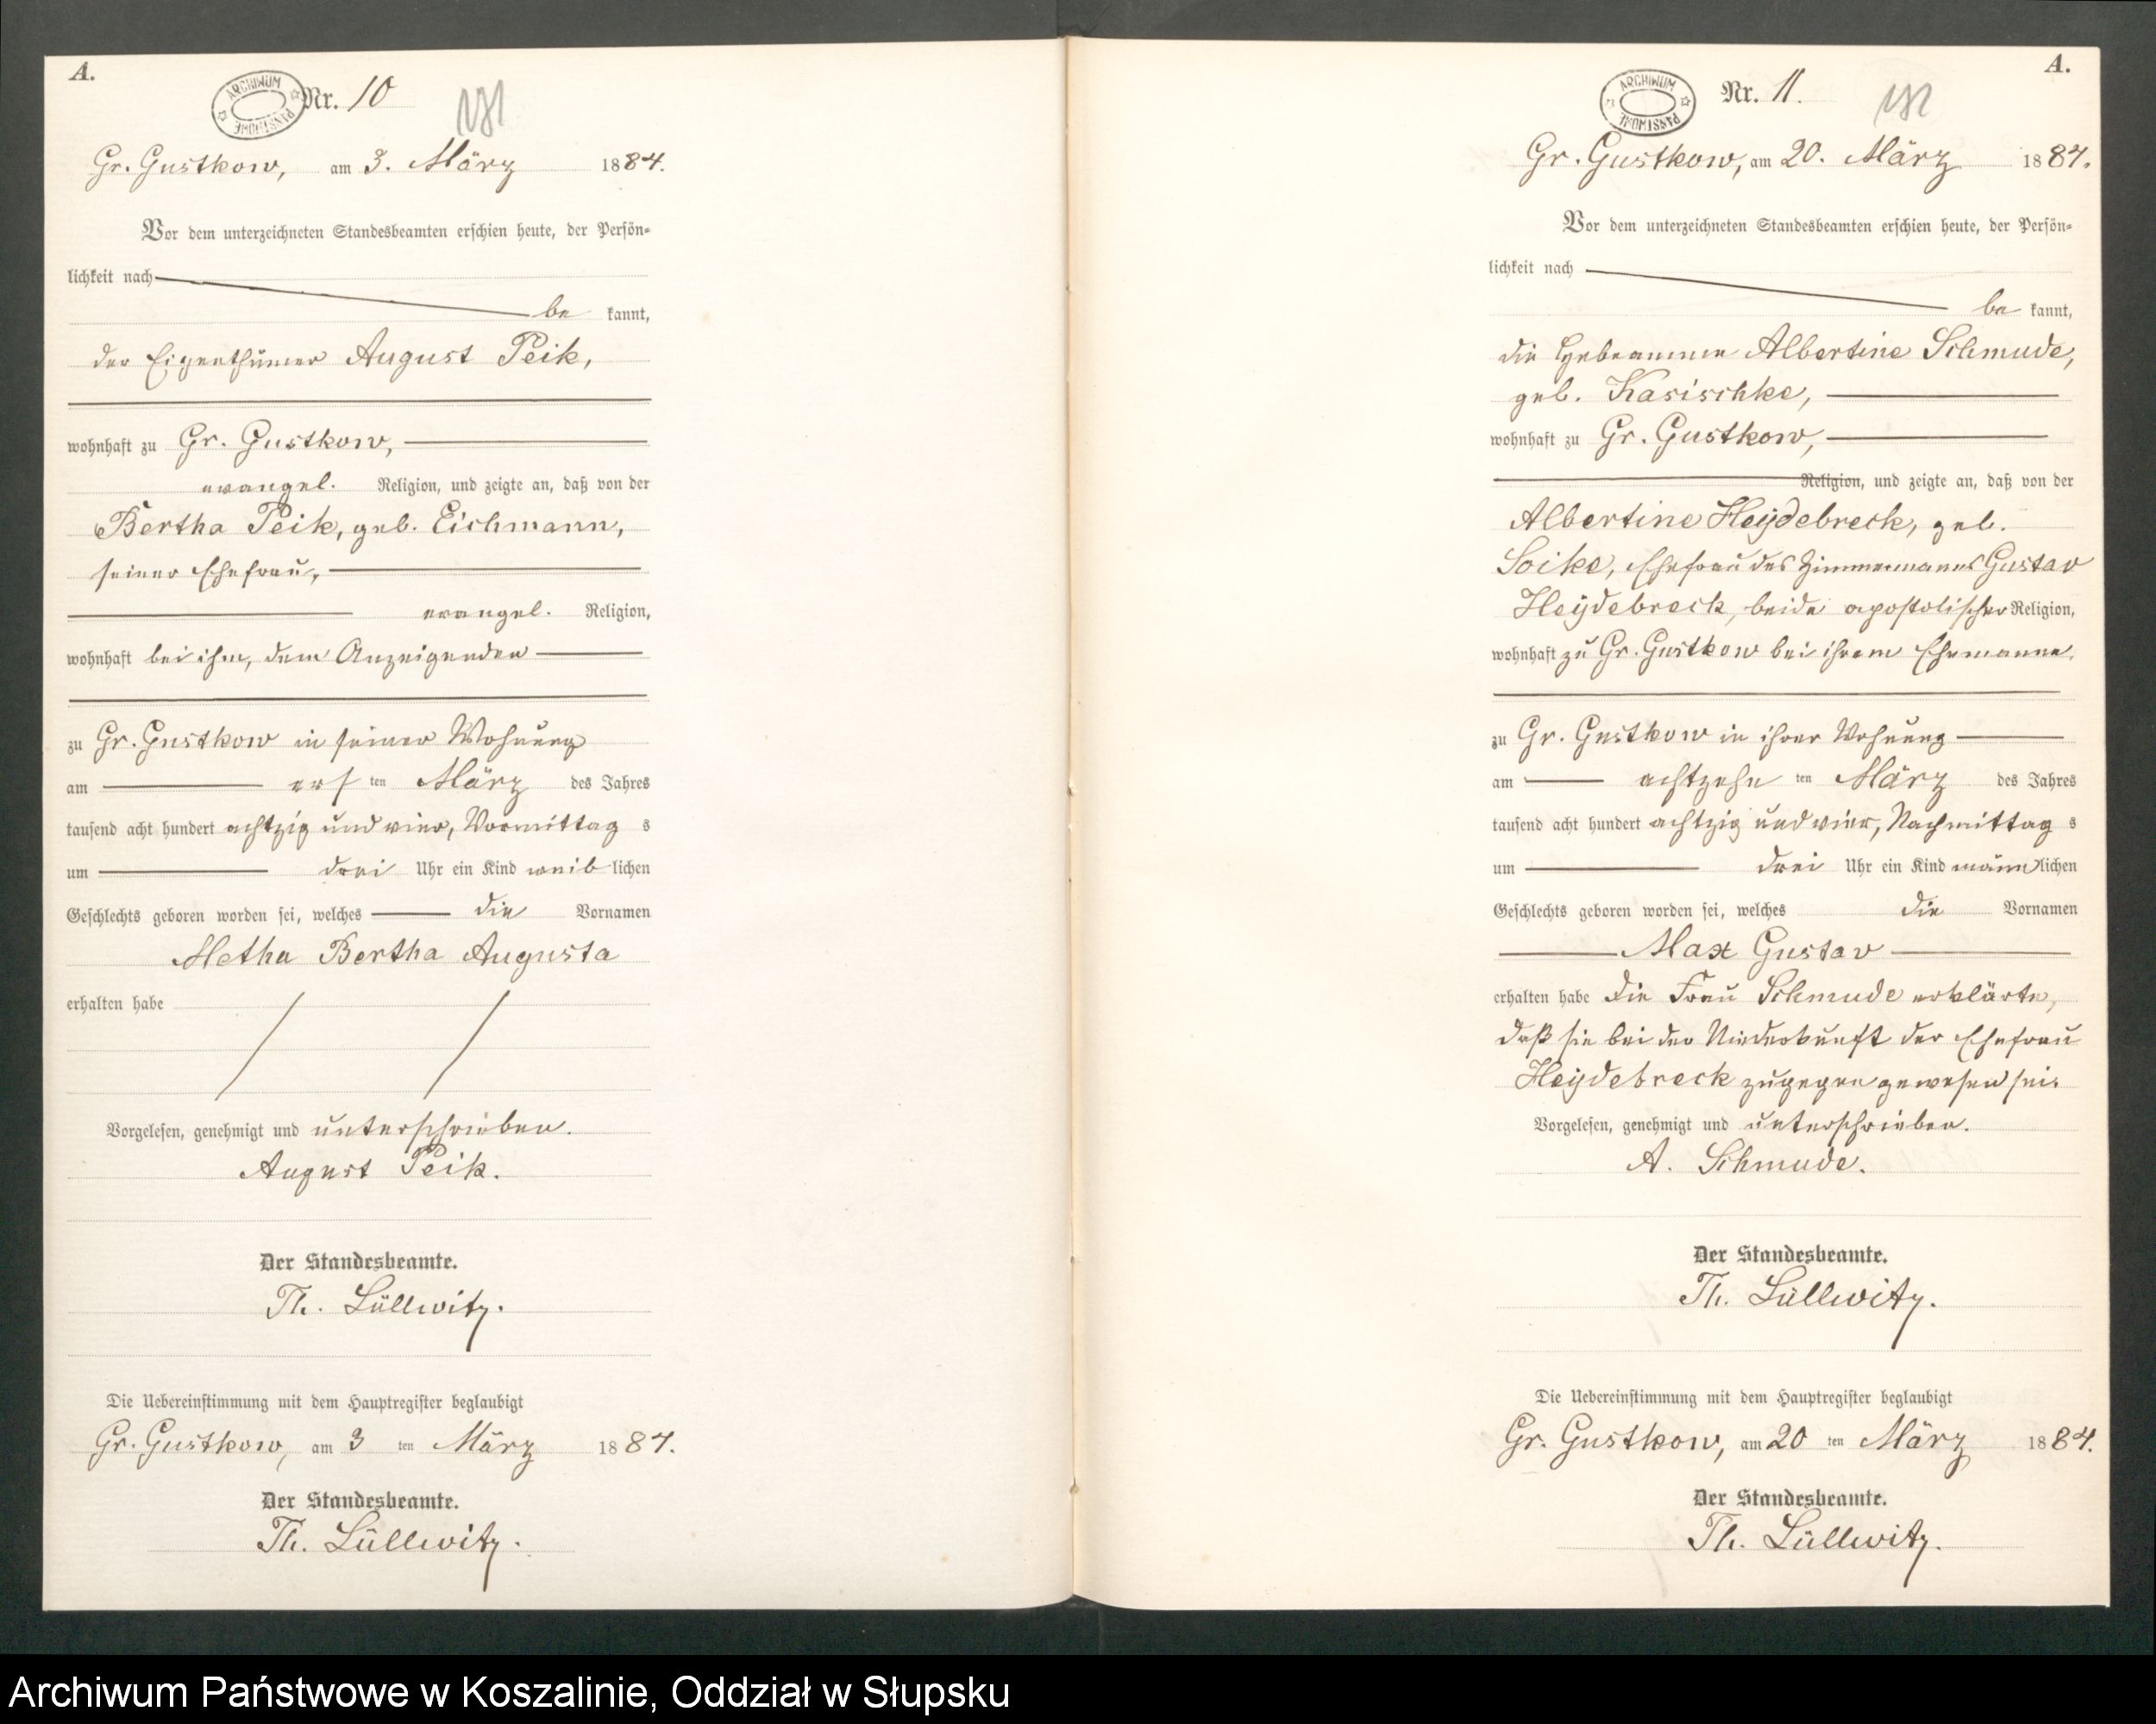 A.
ARCHIWUM PAŃSTWOWE
Nr. 10
Gr. Gustkow, am 3. März 1884.
Vor dem unterzeichneten Standesbeamten erschien heute, der Persön-
lichkeit nach
be kannt,
der Eigenthümer August Peik,
wohnhaft zu Gr. Gustkow,
evangel. Religion, und zeigte an, daß von der
Bertha Peik, geb. Eichmann,
seiner Ehefrau,
evangel. Religion,
wohnhaft bei ihm, dem Anzeigenden
zu Gr. Gustkow in seiner Wohnung
am ers ten März des Jahres
tausend acht hundert achtzig und vier, Vormittag s
um drei Uhr ein Kind weib lichen
Geschlechts geboren worden sei, welches die Vornamen
Metha Bertha Augusta
erhalten habe
Vorgelesen, genehmigt und unterschrieben.
August Peik.
Der Standesbeamte.
Th. Lüllwitz.
Die Uebereinstimmung mit dem Hauptregister beglaubigt
Gr. Gustkow, am 3 ten März 1884.
Der Standesbeamte.
Th. Lüllwitz.
A.
ARCHIWUM PAŃSTWOWE
Nr. 11.
Gr. Gustkow, am 20. März 1884.
Vor dem unterzeichneten Standesbeamten erschien heute, der Persön-
lichkeit nach
be kannt,
die Hebeamme Albertine Schmude,
geb. Kasischke,
wohnhaft zu Gr. Gustkow,
Religion, und zeigte an, daß von der
Albertine Heydebreck, geb.
Soike, Ehefrau des Zimmermanns Gustav
Heydebreck, beide apostolischer Religion,
wohnhaft zu Gr. Gustkow bei ihrem Ehemanne,
zu Gr. Gustkow in ihrer Wohnung
am achtzehn ten März des Jahres
tausend acht hundert achtzig und vier, Nachmittag s
um drei Uhr ein Kind männ lichen
Geschlechts geboren worden sei, welches die Vornamen
Max Gustav
erhalten habe die Frau Schmude erklärte,
daß sie bei der Niederkunft der Ehefrau
Heydebreck zugegen gewesen sei.
Vorgelesen, genehmigt und unterschrieben.
A. Schmude.
Der Standesbeamte.
Th. Lüllwitz.
Die Uebereinstimmung mit dem Hauptregister beglaubigt
Gr. Gustkow, am 20 ten März 1884.
Der Standesbeamte.
Th. Lüllwitz.
Archiwum Państwowe w Koszalinie, Oddział w Słupsku